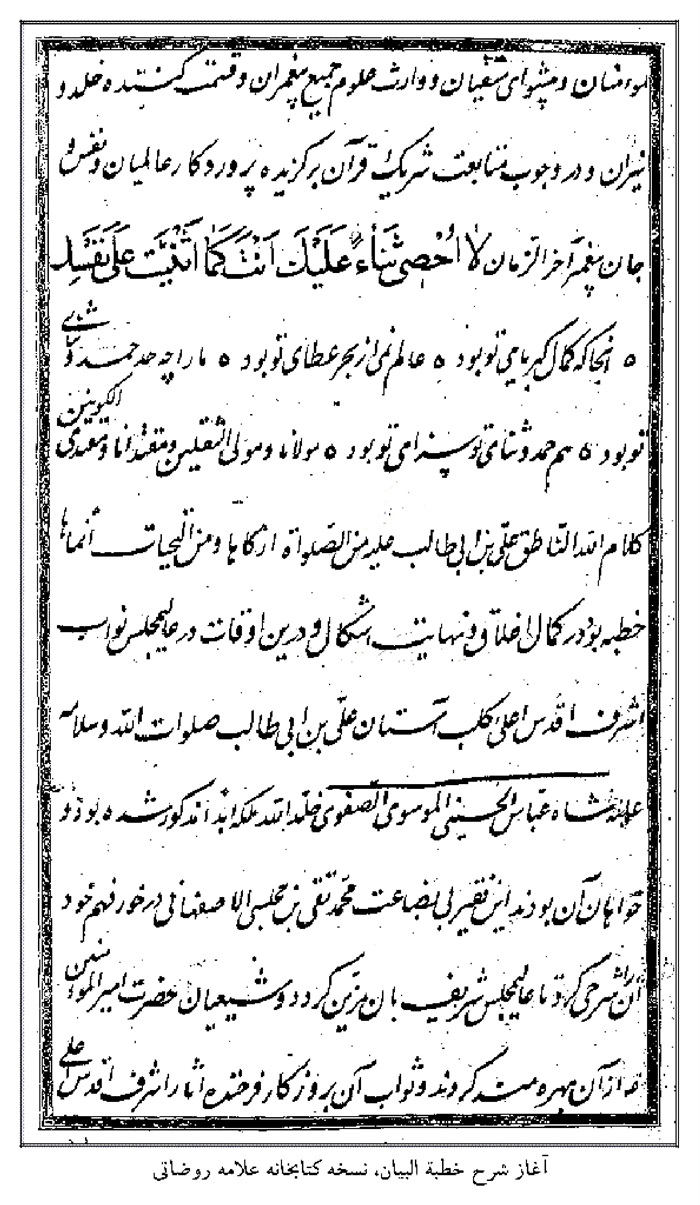 المؤمنان و پیشوای متقیان و وارث علوم جمیع پیغمبران و قسمت کننده خلد و
نیران و در وجوب متابعت شریک قرآن برگزیده پروردکار عالمیان و نفس و
جان پیغمبر آخر الزمان لا اُحْصی ثَنَاءً عَلَیْكَ اَنْتَ کَمَا اَثْنَیْتَ عَلی نَفْسِكَ
ه انجا که کمال کبریای تو بود ه عالم نمی از بحر عطای تو بود ه ما را چه حد حمد و ثنای
تو بود ه هم حمد و ثنای تو سزای تو بود ه مولانا و مولی الثقلین و مقتدانا و مقتدی الکونین
کلام الله الناطق علی بن ابی طالب علیه من الصلوات ازکاها و من التحیات أنماها
خطبه بود در کمال اغلاق و نهایت اشکال و درین اوقات در عالیمجلس نواب
اشرف اقدس اعلی کلب آستان علی بن ابی طالب صلوات الله و سلامه
علیه شاه عباس الحسینی الموسوی الصفوی خلد الله ملکه ابدا مذکور شده بود و
خواهان آن بودند این فقیر بی بضاعت محمد تقی بن مجلسی الاصفهانی در خور فهم خود
آن را شرحی کرد تا عالیمجلس شریف بان مزین کردد و شیعیان حضرت امیر المؤمنین
از آن بهره مند کردند و ثواب آن بروزکار فرخنده آثار اشرف اقدس اعلی
آغاز شرح خطبة البیان، نسخه کتابخانه علامه روضاتی